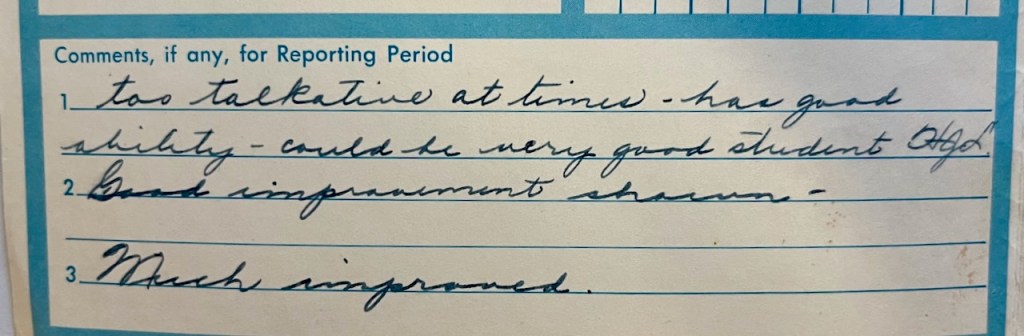 Comments, if any, for Reporting Period
1. too talkative at times - has good
ability - could be very good student
2. Good improvement shown -
3. Much improved.